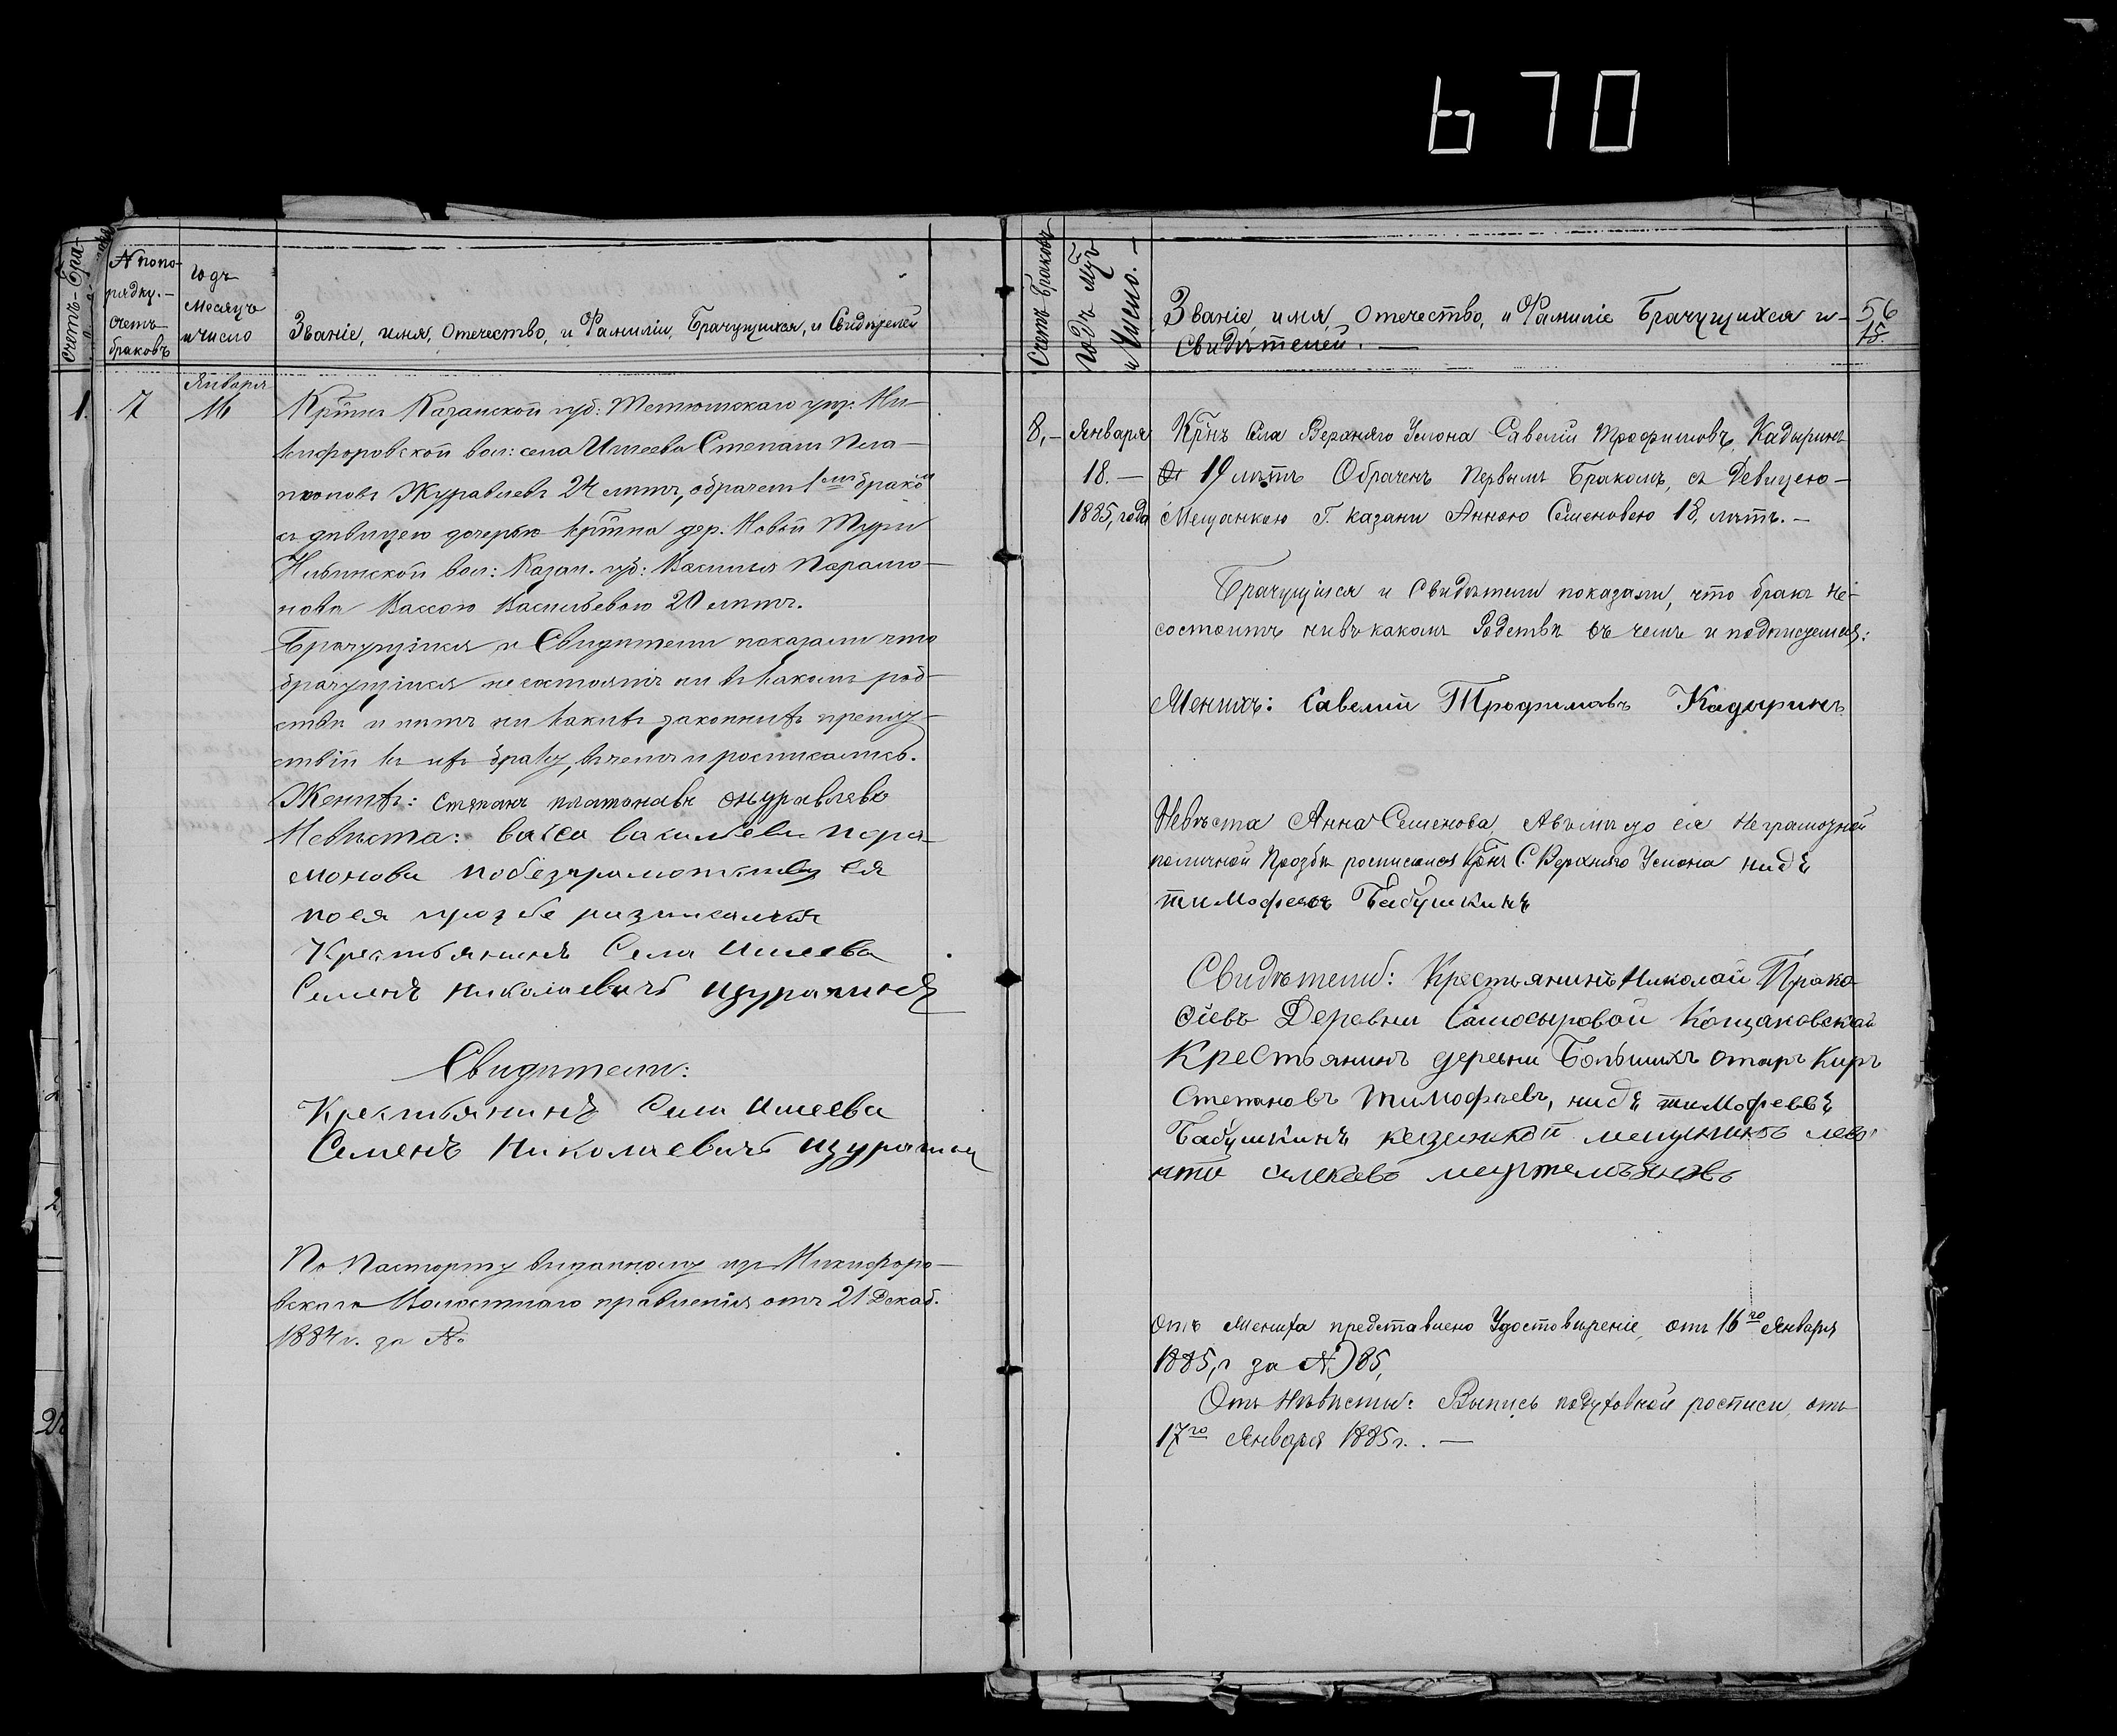 670
Счетъ-Бра-
N попо-
рядку.-
счетъ
браковъ
Годъ
месяцъ
и число
Званіе, имя, отечество, и Фамиліи, Брачущихся, и Свидѣтелей
1.
7
Января
16
Крт҃нъ Казанской губ: Тетюшскаго уѣз. Ни-
кифоровской вол: села Ишеева Степанъ Пла-
тоновъ Журавлевъ 24 лѣтъ, обрачен 1емъ бракомъ
съ дѣвицею дочерью крт҃нна дер. Новой Туры
Ильинской вол: Казан. губ: Василья Парамо-
нова Вассою Васильевою 20 лѣтъ.
Брачущіися и Свидѣтели показали что
брачущіися не состоятъ ни въ какомъ род-
ствѣ и нѣтъ ни какихъ законныхъ препят-
ствій къ ихъ браку, въ чемъ и росписались.
Женихъ: Степанъ платонавъ журавлевъ
Невѣста: васса василевна пора-
монова
по ея прозбе
Крестьянинъ Села Ишеева
Семенъ Николаевичъ
Свидѣтели:
Крестьянинъ Села Ишеева
Семенъ Николаевичъ
По Паспорту выданному из Никифоро-
вскаго Волостнаго правленія отъ 21 Декаб.
1884 г. за №
Счетъ Браковъ
Годъ Мцъ
и Число.-
Званіе, имя, отечество, и Фамиліе Брачущихся и-
Свидѣтелей.-
56
15.
8,-
Января
18.-
1885, года
Крт҃нъ Села Верхняго Услона Савелій Трофимовъ, Кадыринъ
19 лѣтъ Обраченъ Первымъ Бракомъ, съ Девицею-
Мещанкою Г. Казани Анною Семеновею 18, лѣтъ.-
Брачущіися и Свидѣтели показали, что бракъ не-
состоитъ нивъкакомъ Родствѣ въ чемъ и подписуемся:
Женихъ: Савелий Трофимавъ Кадыринъ
Невѣста Анна Семенова, Авъмѣсто ея Неграмотной
поличной Прозбѣ росписался Крт҃нъ С. Верхняго Услона
тимофеевъ Бабушкинъ
Свидѣтели: Крестьянинъ Николай Прако
фіевъ Деревни Самосыровой Кощаковской
Крестьянинъ деревни Большихъ отаръ Киръ
Степановъ Тимофѣевъ, тимофеевъ
Бабушкинъ
Отъ Жениха представлено Удостовѣреніе, отъ 16го Января
1885,г за № 85,
Отъ Нѣвѣсты: Выпись подуховной росписи, отъ
17го Января 1885 г. .-